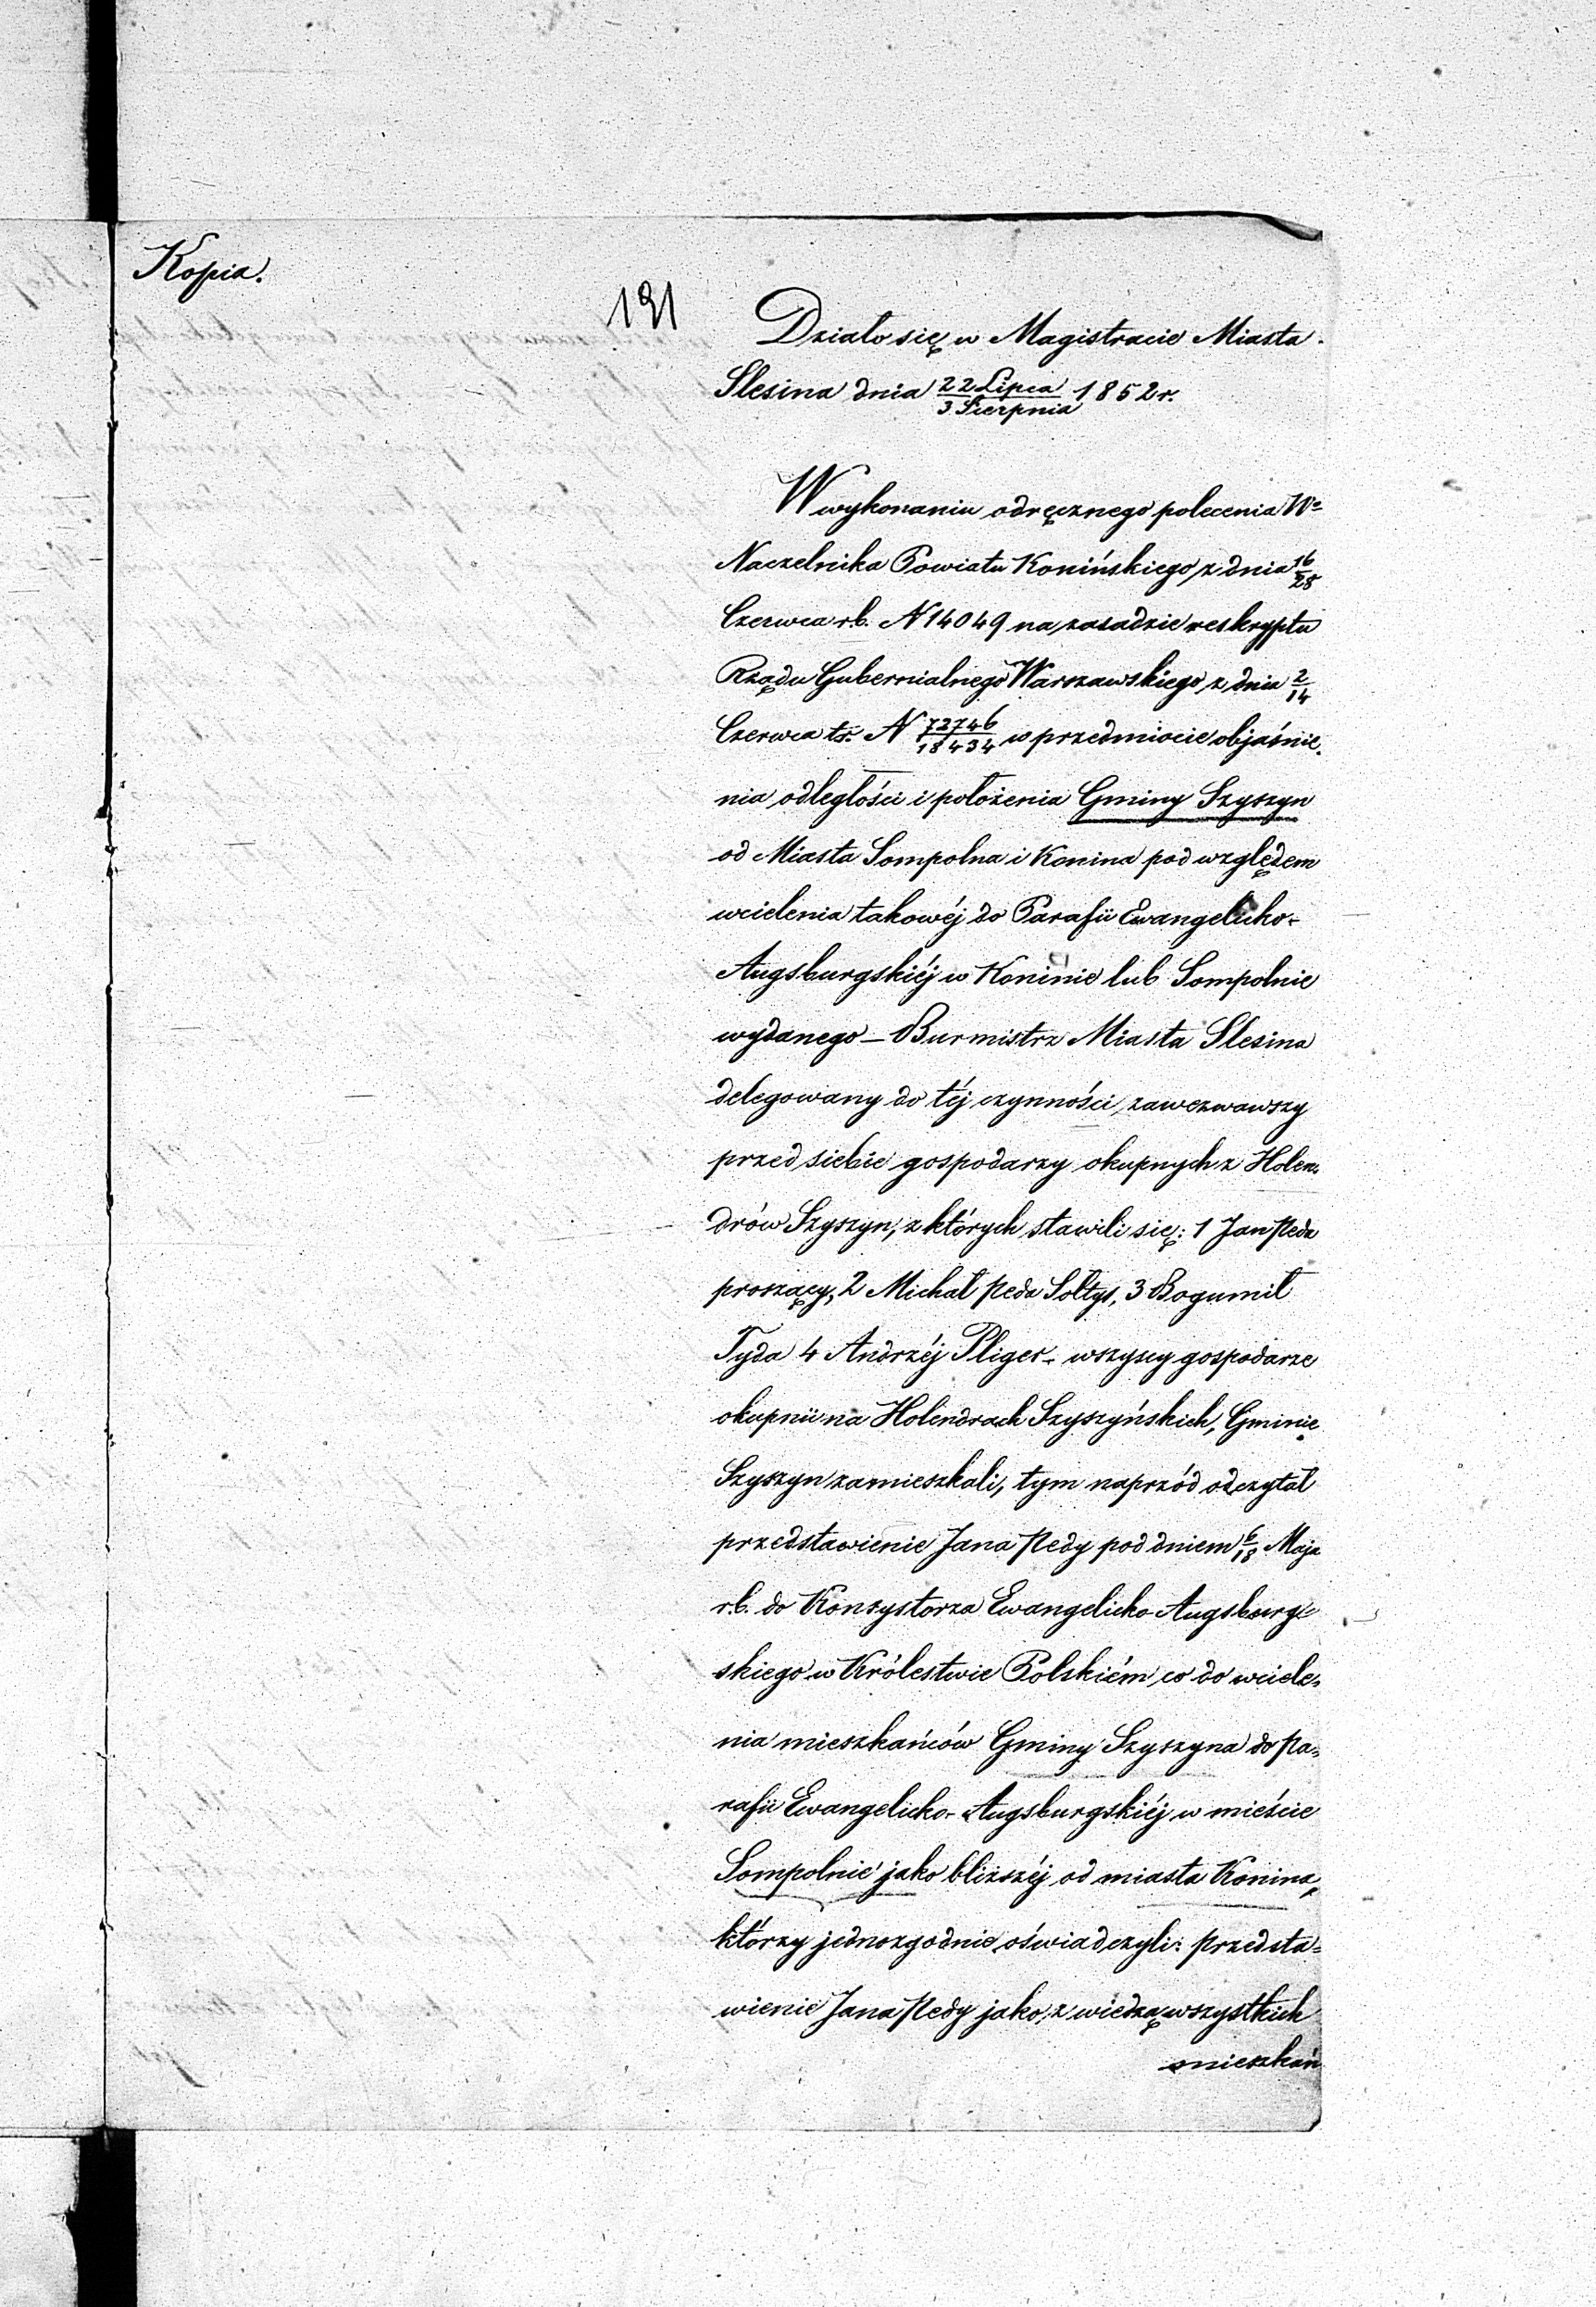 Kopia.
131
Działo się w Magistracie Miasta
Slesina dnia 22 Lipca/3 Sierpnia 1852 r.
W wykonaniu odręcznego polecenia Wo
Naczelnika Powiatu Konińskiego z dnia 16/28
Czerwca r.b. N 14049 na zasadzie reskryptu
Rządu Gubernialnego Warszawskiego z dnia 2/14
Czerwca t.r. N 72746/18434 w przedmiocie objaśnie-
nia odległości i położenia Gminy Szyszyn
od Miasta Sompolna i Konina pod względem
wcielenia takowéj do Parafii Ewangelicko-
Augsburgskiéj w Koninie lub Sompolnie
wydanego – Burmistrz Miasta Slesina
delegowany do téj czynności, zawezwawszy
przed siebie gospodarzy okupnych z Holen-
drów Szyszyn, z których stawili się: 1 Jan Reda
proszący, 2 Michał Reda Sołtys, 3 Bogumił
Tyda 4 Andrzéj Pliger – wszyscy gospodarze
okupnii na Holendrach Szyszyńskich, Gminie
Szyszyn zamieszkali, tym naprzód odczytał
przedstawienie Jana Redy pod dniem 6/18 Maja
r.b. do Konsystorza Ewangelicko-Augsburg-
skiego w Królestwie Polskiém co do wciele-
nia mieszkańców Gminy Szyszyna do Pa-
rafii Ewangelicko-Augsburgskiéj w mieście
Sompolnie jako bliższéj od miasta Konina,
którzy jednozgodnie oświadczyli: przedsta-
wienie Jana Redy jako z wiedzą wszystkich
mieszkań